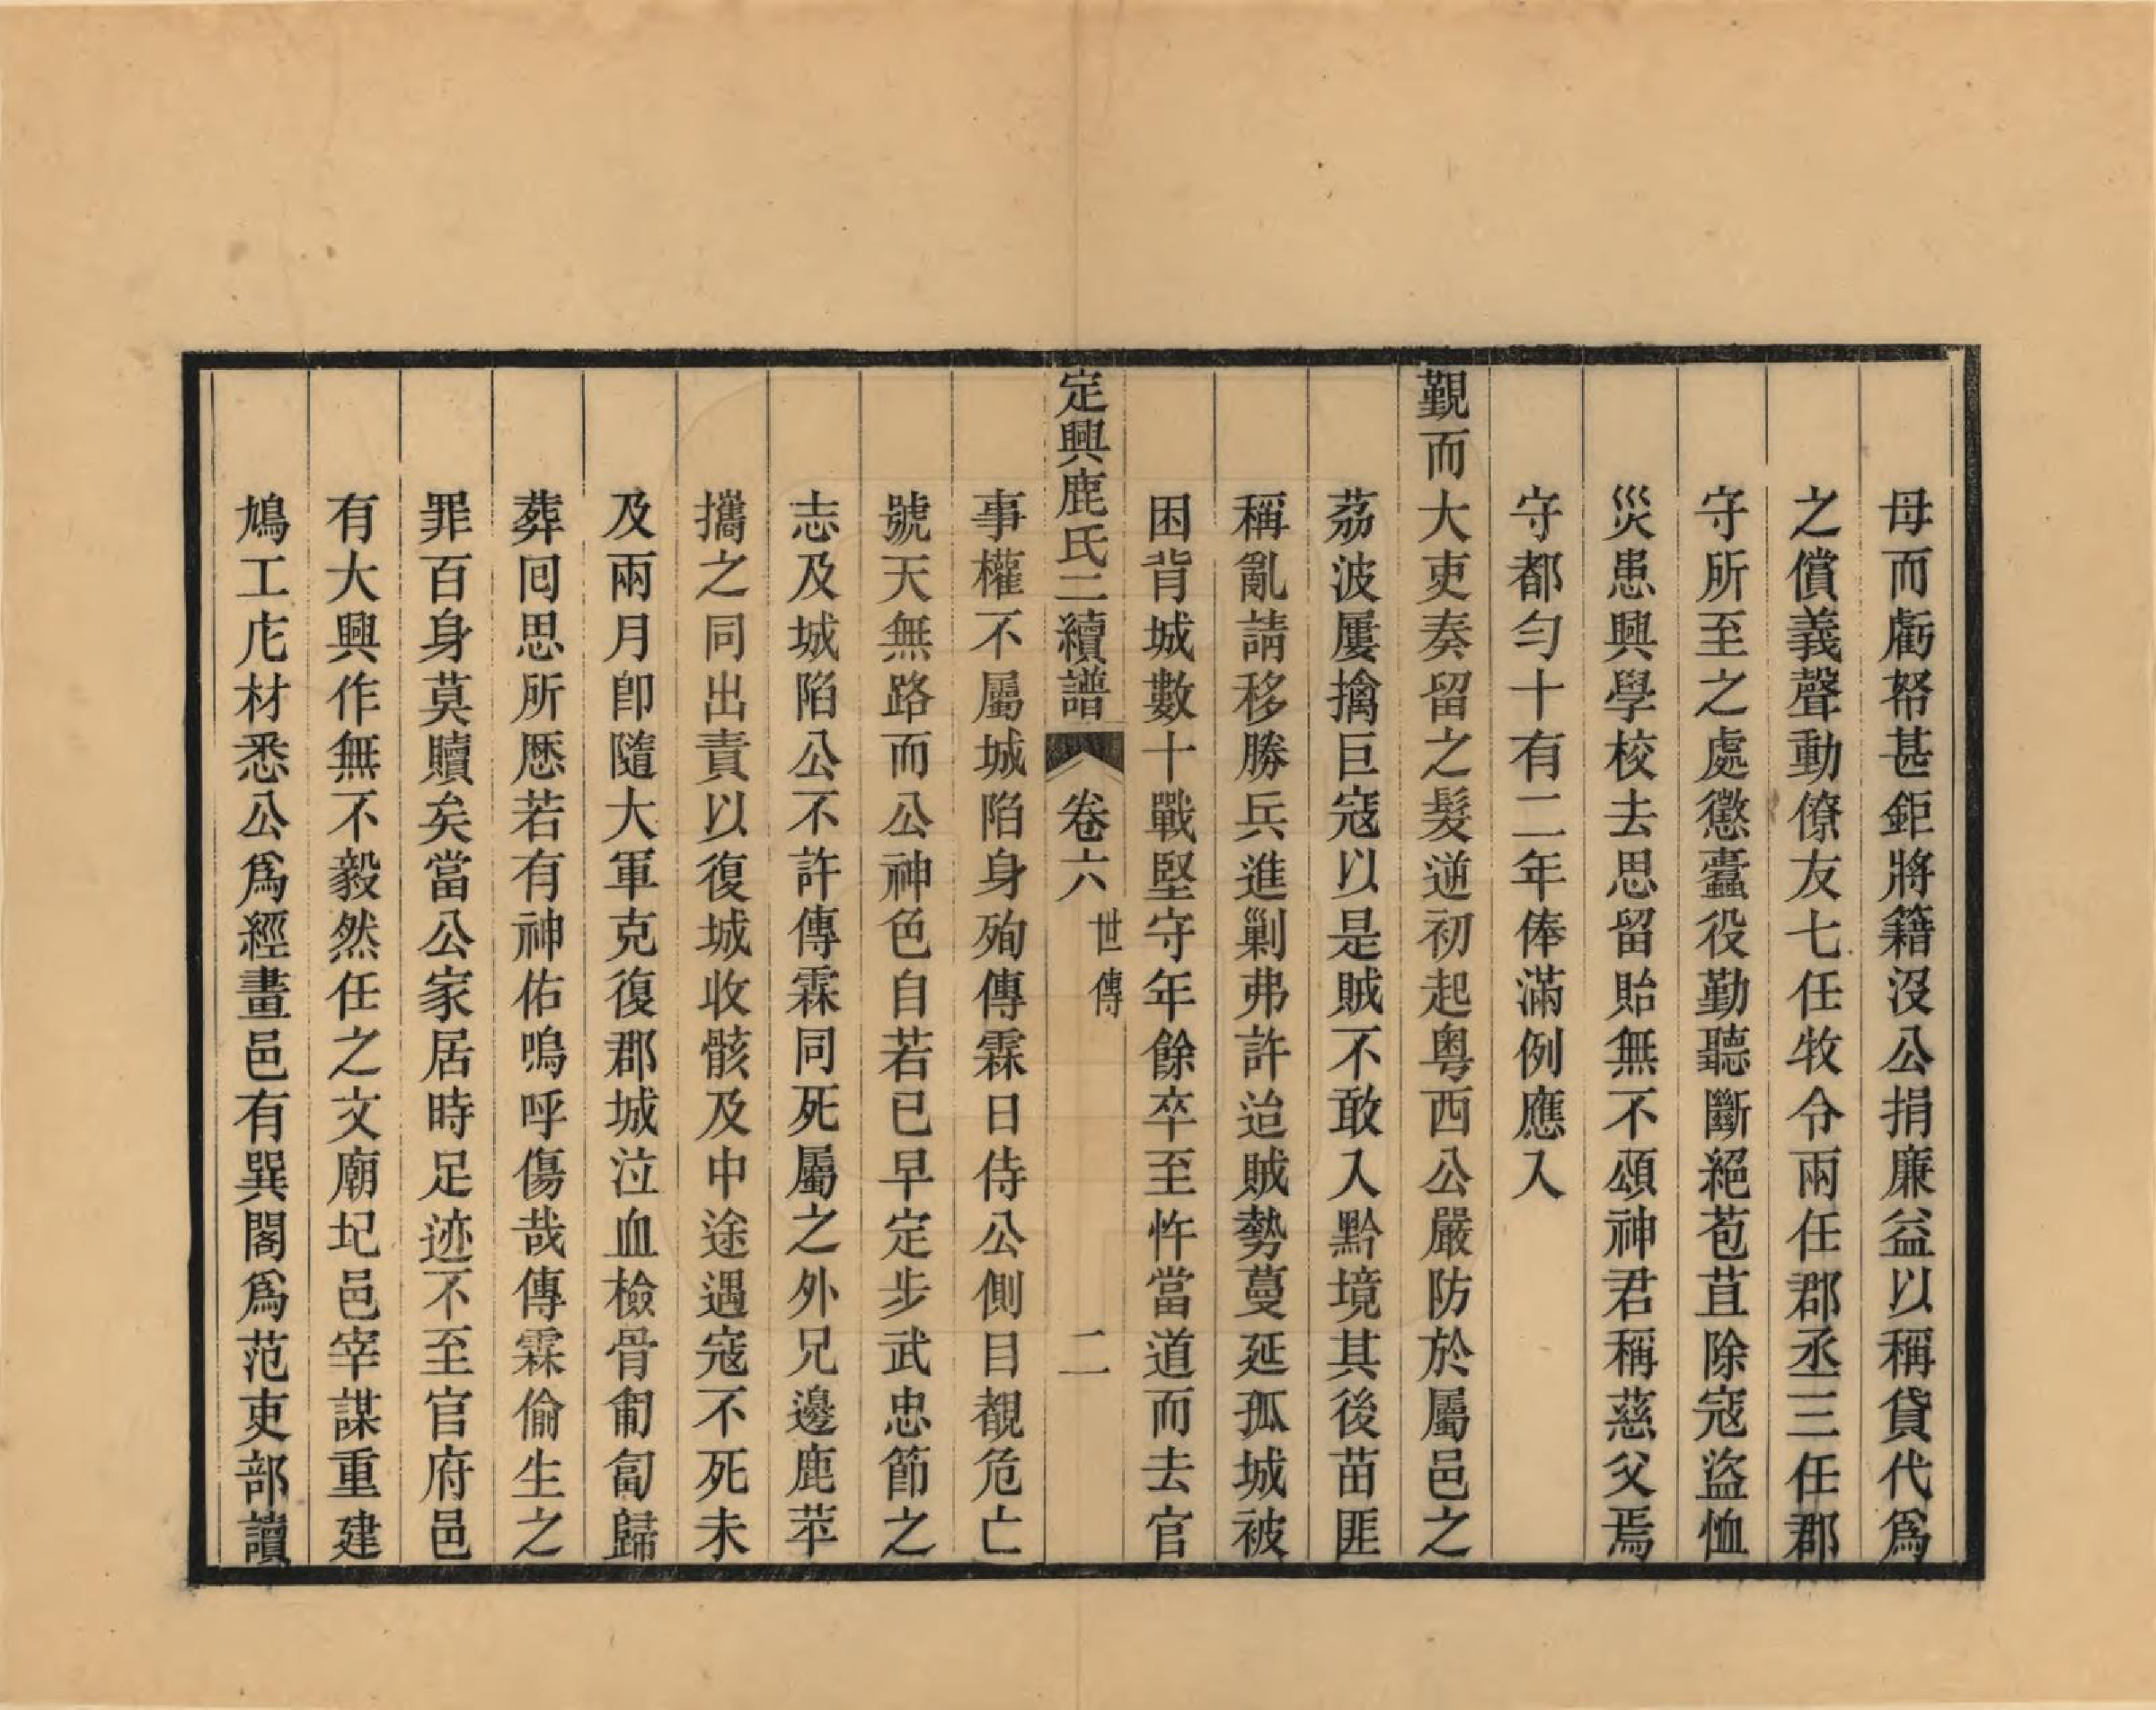 母而虧帑甚鉅將籍沒公捐廉益以稱貸代爲
之償義聲動僚友七任牧令兩任郡丞三任郡
守所至之處懲蠹役勤聽斷絕苞苴除寇盜恤
災患興學校去思留貽無不頌神君稱慈父焉
守都匀十有二年俸滿例應入
覲而大吏奏留之髮逆初起粤西公嚴防於屬邑之
荔波屢擒巨寇以是賊不敢入黔境其後苗匪
稱亂請移勝兵進剿弗許迨賊勢蔓延孤城被
困背城數十戰堅守年餘卒至忤當道而去官
定興鹿氏二續譜 卷六 世傳 二
事權不屬城陷身殉傳霖日侍公側目覩危亡
號天無路而公神色自若已早定步武忠節之
志及城陷公不許傳霖同死屬之外兄邊鹿苹
攜之同出責以復城收骸及中途遇寇不死未
及兩月卽隨大軍克復郡城泣血檢骨匍匐歸
葬囘思所歷若有神佑嗚呼傷哉傳霖偷生之
罪百身莫贖矣當公家居時足迹不至官府邑
有大興作無不毅然任之文廟圮邑宰謀重建
鳩工庀材悉公爲經畫邑有巽閣爲范吏部讀